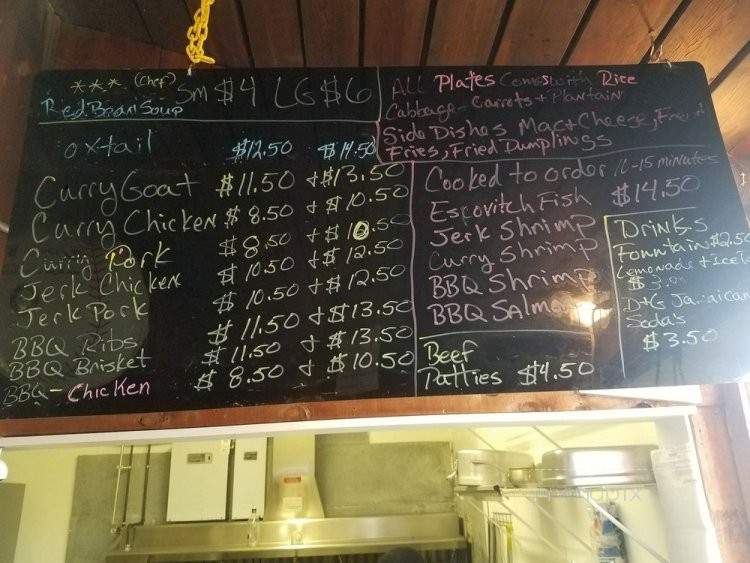 *** (Chef)
Red Bean Soup Sm $4 LG $6
oxtail $12.50 $14.50
Curry Goat $11.50 + $13.50
Curry Chicken $8.50 + $10.50
Curry Pork $8.50 + $10.50
Jerk Chicken $10.50 + $12.50
Jerk Pork $10.50 + $12.50
BBQ Ribs $11.50 + $13.50
BBQ Brisket $11.50 + $13.50
BBQ - Chicken $8.50 + $10.50
ALL Plates Comes with Rice
Cabbage - Carrots + Plantain
Side Dishes Mac + Cheese,
Fries, Fried Dumplings
Cooked to order 10-15 minutes
Escovitch Fish $14.50
Jerk Shrimp
Curry Shrimp
BBQ Shrimp
BBQ Salmon
Beef
Patties $4.50
DRINKS
Fountain $2.50
Lemonade + Ice
D+G Jamaican
Soda's
$3.50